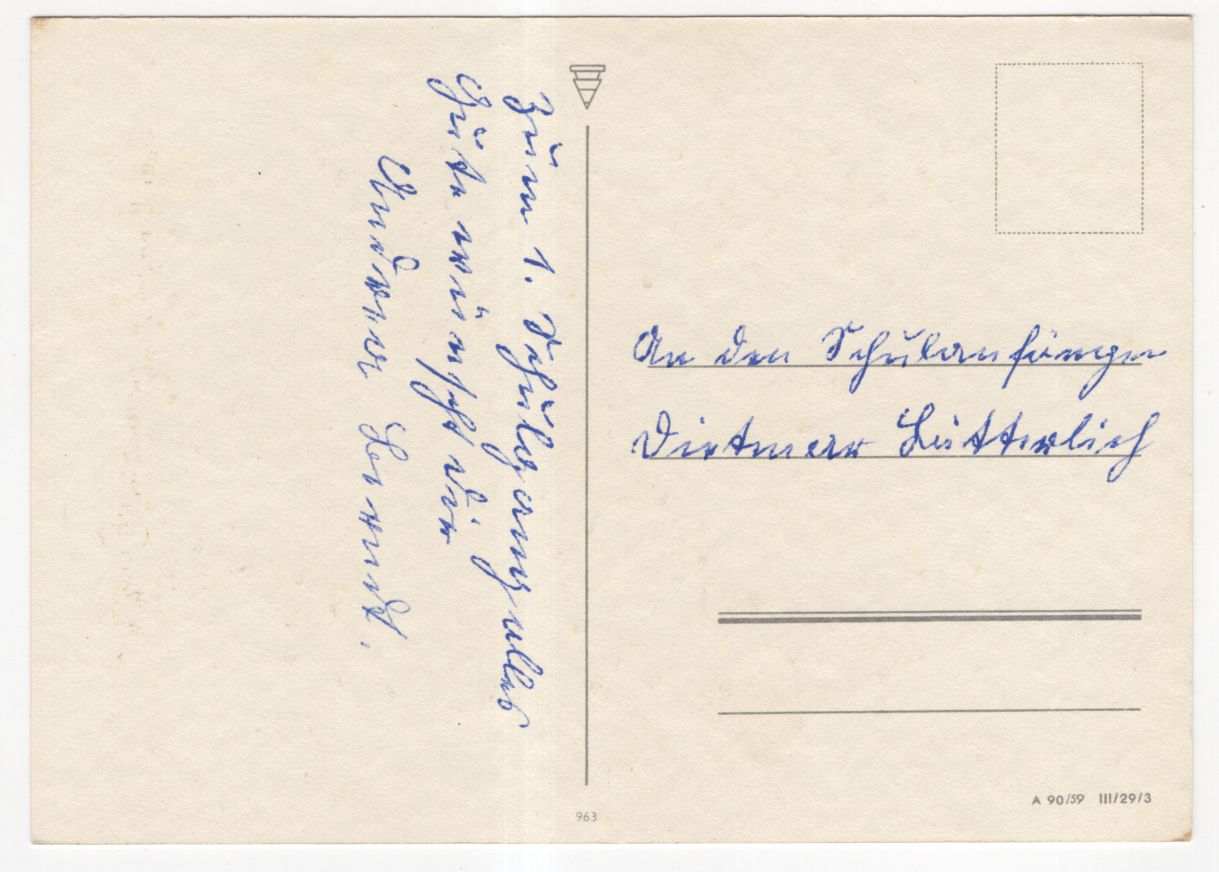 Zum 1. Schulgang alles
Gute wünscht dir
Andrea Berndt.
An den Schulanfänger
Dietmar Lütterlich
963
A 90/59 III/29/3